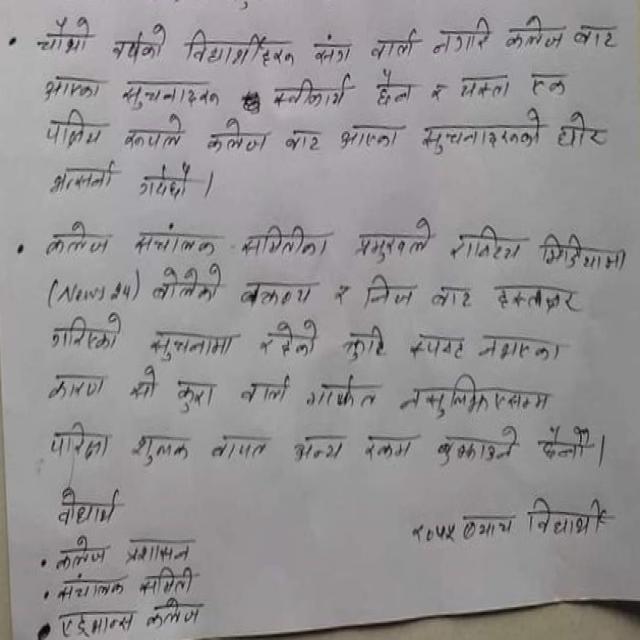 • चौथो वर्षका विद्यार्थीहरू संग वार्ता नगरि कलेज बाट
आएका सुचनाहरू स्वीकार्य छैन र यस्ता एक
पक्षिय रूपले कलेज बाट आएका सुचनाहरूको घोर
भत्सर्ना गर्दछौं ।
• कलेज संचालक समितीका प्रमुखले राष्ट्रिय मिडियामा
(News 24) बोलेको वक्तव्य र निज बाट हस्ताक्षर
गरिएको सुचनामा रहेको कुरा स्पष्ट नभएका
कारण सो कुरा वार्ता मार्फत नसुल्झिएसम्म
परिक्षा शुल्क वापत अन्य रकम बुझाउने छैनौं ।
वोधार्थ
२०५५ व्याच विद्यार्थी
• कलेज प्रशासन
• संचालक समिती
• एडभान्स कलेज